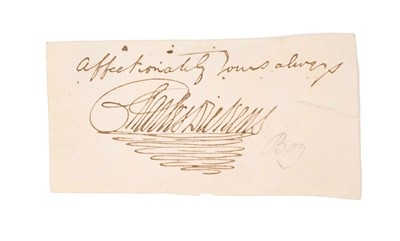 Affectionately Yours always
Charles Dickens
Boz